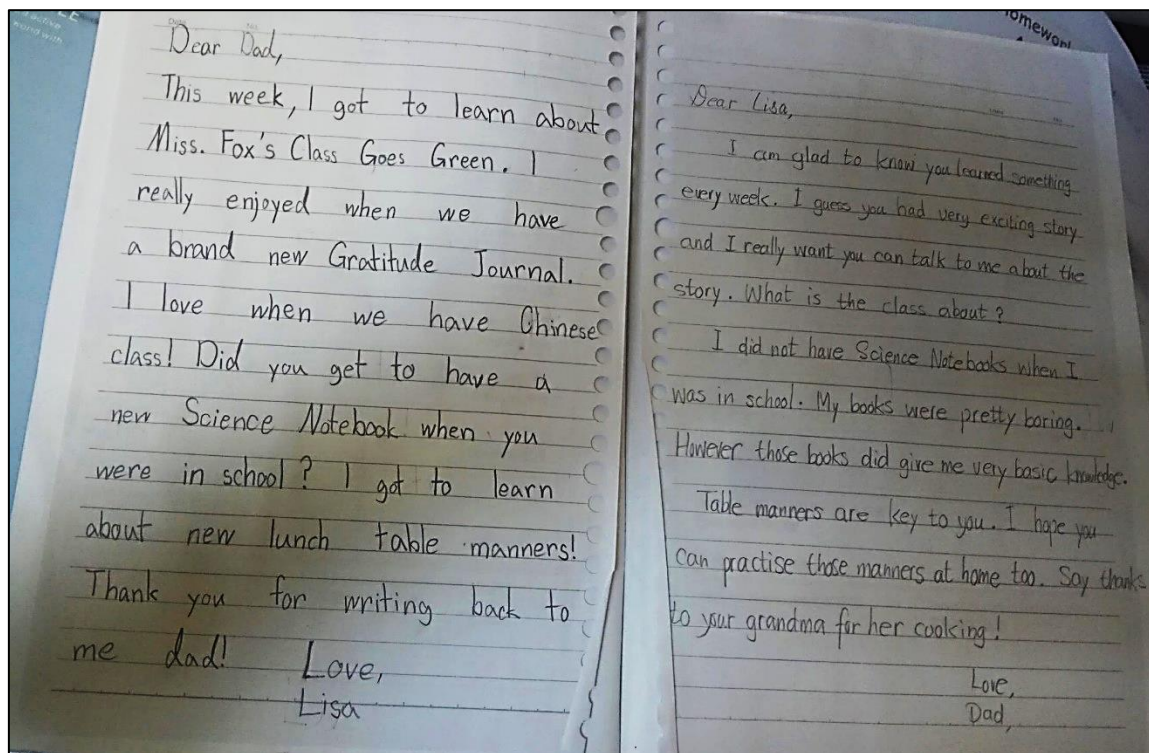 Dear Dad,
This week, I got to learn about
Miss. Fox's Class Goes Green. I
really enjoyed when we have
a brand new Gratitude Journal.
I love when we have Chinese
class! Did you get to have a
new Science Notebook when you
were in school? I got to learn
about new lunch table manners!
Thank you for writing back to
me dad! Love,
Lisa
Dear Lisa,
I am glad to know you learned something
every week. I guess you had very exciting story
and I really want you can talk to me about the
story. What is the class about?
I did not have Science Notebooks when I
was in school. My books were pretty boring.
However those books did give me very basic knowledge.
Table manners are key to you. I hope you
can practise those manners at home too. Say thanks
to your grandma for her cooking!
Love,
Dad,